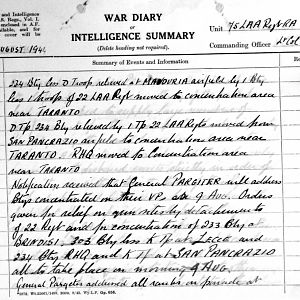 and Intelligence
S. Regs., Vol. I
enclosed in A.F.
available, and for
cover will be
WAR DIARY
or
INTELLIGENCE SUMMARY
(Delete heading not required).
Unit 75 LAA Regt RA
Commanding Officer Lt Col
AUGUST 194
Summary of Events and Information
234 Bty less D Troop relieved at MANDURIA airfield by 1 Bty
less 1 troop of 22 LAA Regt moved to concentration area
near TARANTO
D Tp 234 Bty relieved by 1 Tp 22 LAA Regt moved from
SAN PANCRAZIO airfield to concentration area near
TARANTO. RHQ moved to Concentration area
near TARANTO
Notification received that General PARGITER will address
Btys concentrated on their VPs 9 Aug. Orders
given for relief on gun sites by detachments
of 22 Regt and for concentration of 233 Bty at
BRINDISI, 303 Bty less K Tp at LECCE and
234 Bty RHQ and K Tp at SAN PANCRAZIO
all to take place on morning 9 AUG.
General Pargiter addressed all ranks on parade at